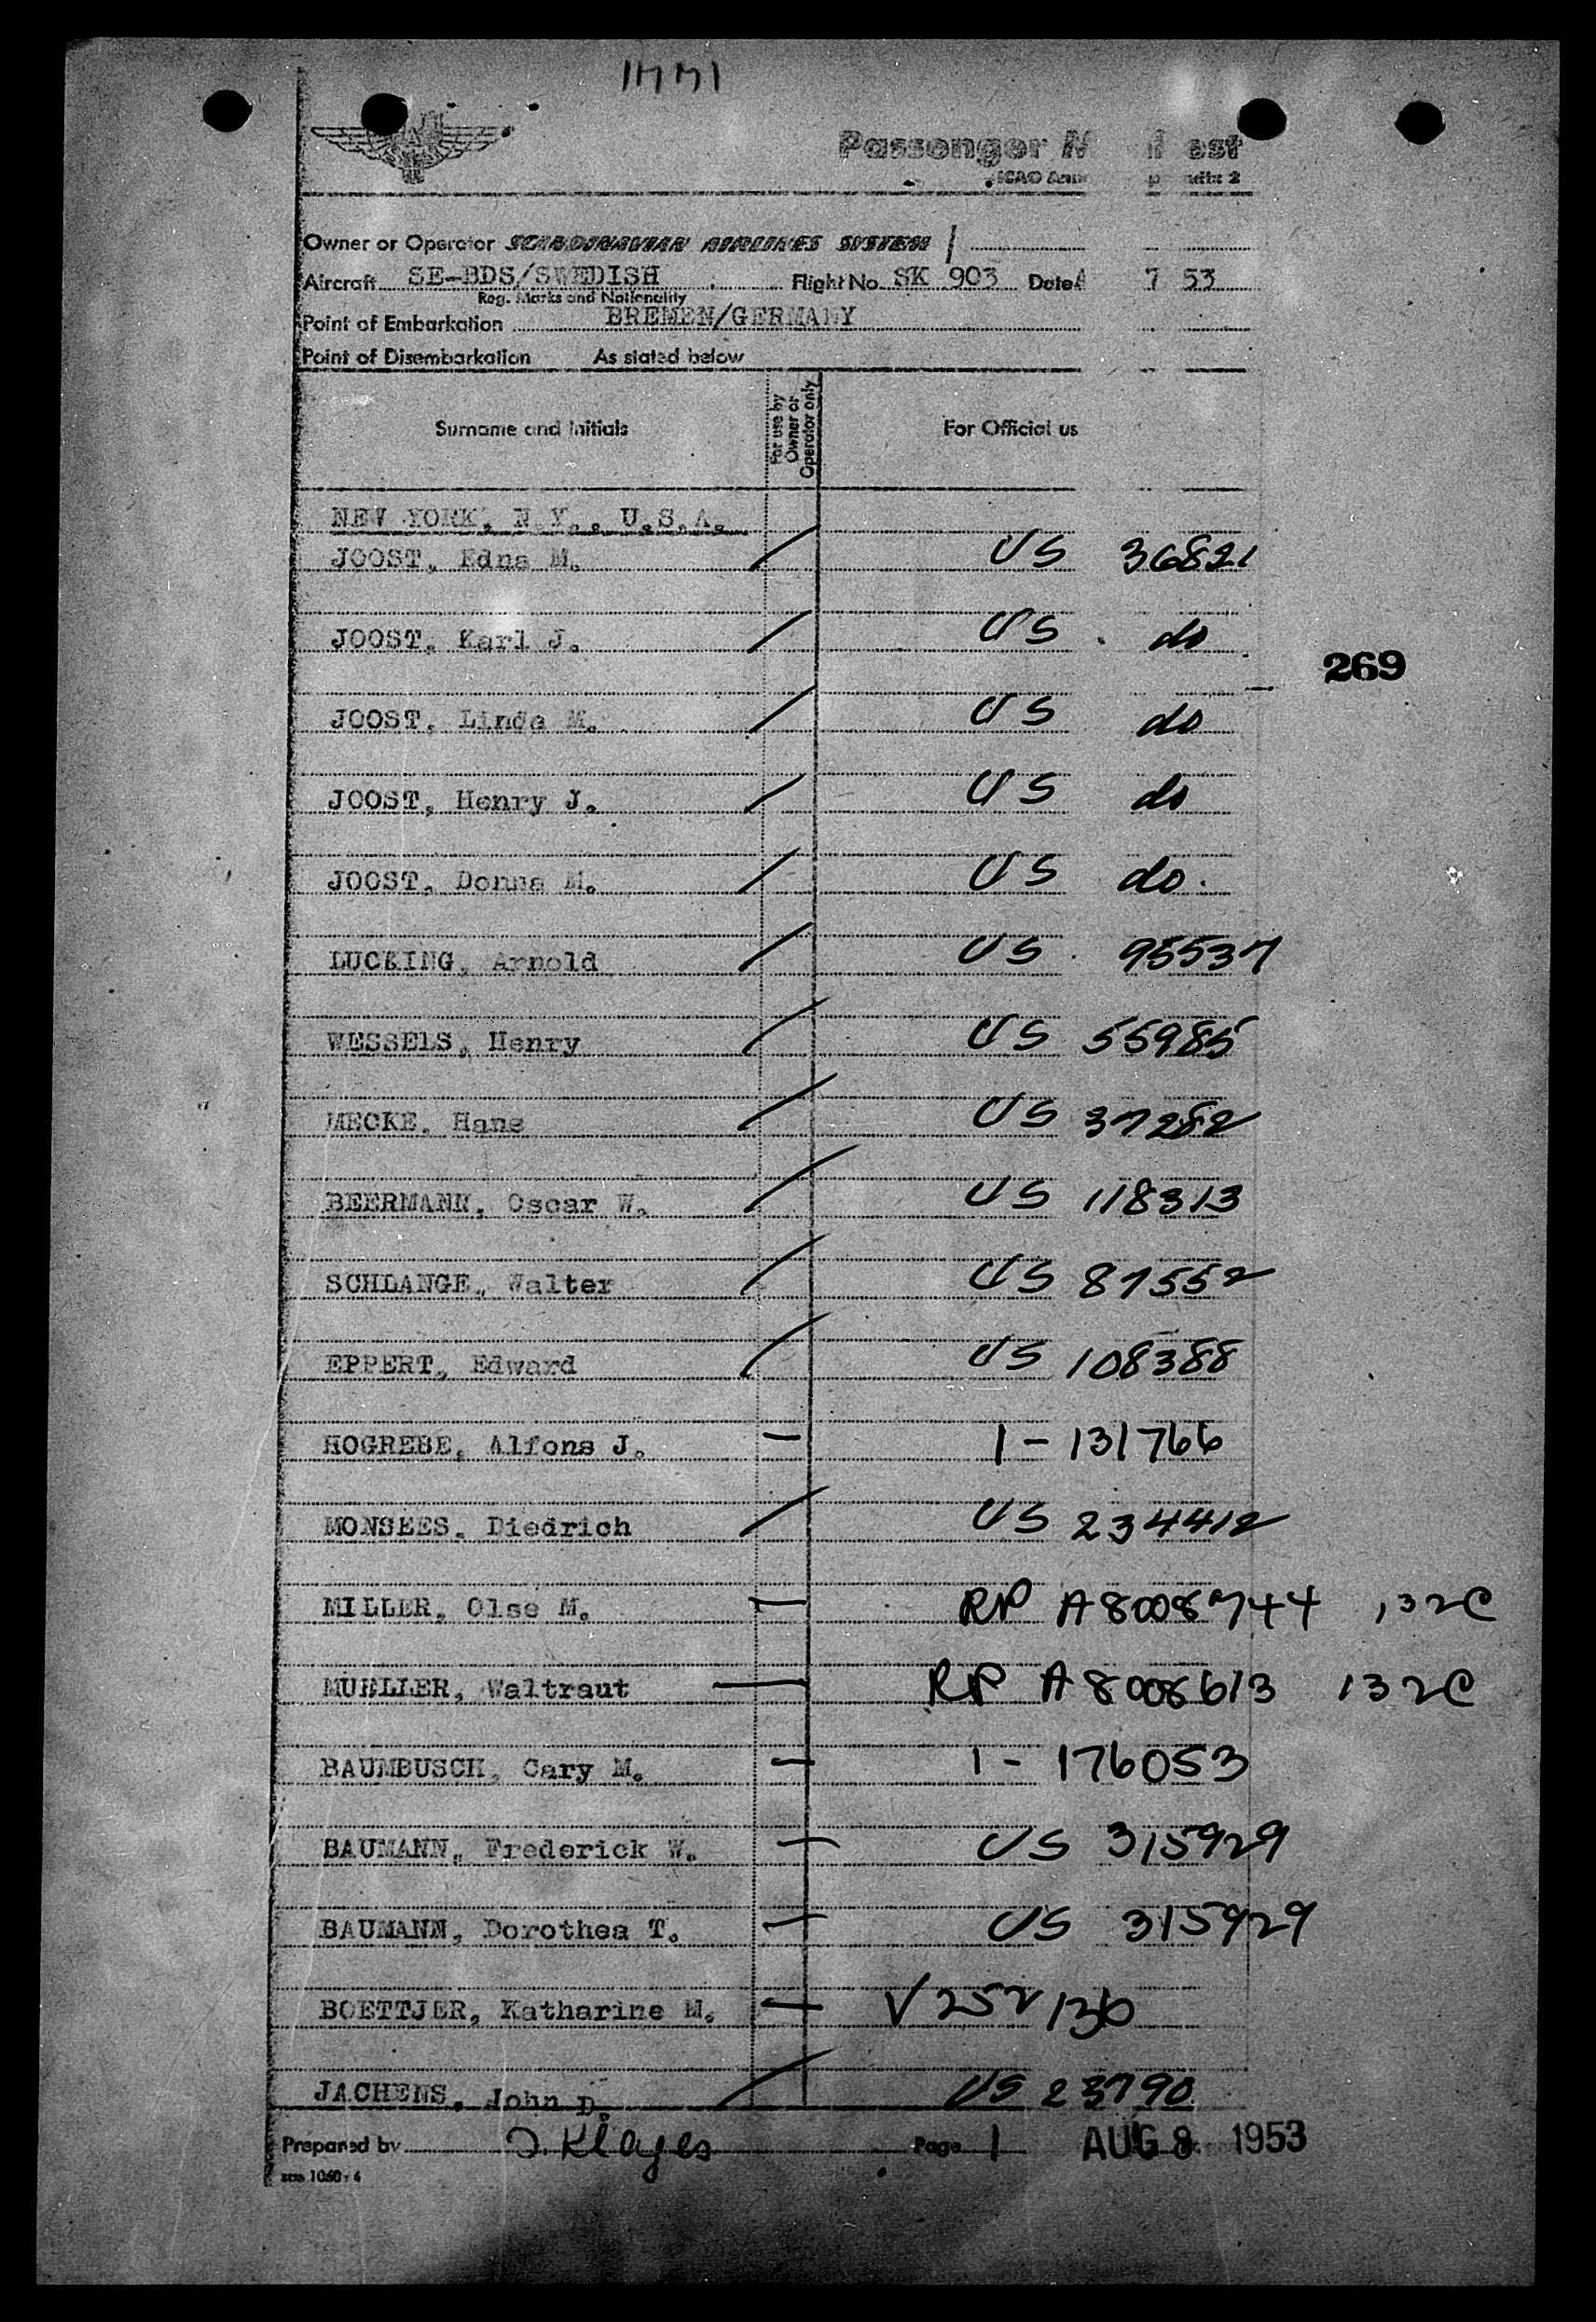 Passenger M
ICAO Ann
Owner or Operator SCANDINAVIAN AIRLINES SYSTEM /
Aircraft SE-BDS/SWEDISH Flight No. SK 903 Date A 7 53
Reg. Marks and Nationality
Point of Embarkation BREMEN/GERMANY
Point of Disembarkation As stated below
Surname and Initials For use by Owner or Operator only For Official us
NEW YORK, N.Y., U.S.A.
JOOST, Edna M. / US 36821
JOOST, Karl J. / US do
269
JOOST, Linda M. / US do
JOOST, Henry J. / US do
JOOST, Donna M. / US do.
LUCKING, Arnold / US 95537
WESSELS, Henry / US 55985
MECKE, Hans / US 37282
BEERMANN, Oscar W. / US 118313
SCHLANGE, Walter / US 87552
EPPERT, Edward / US 108388
HOGREBE, Alfons J. - 1-131766
MONSEES, Diedrich / US 234412
MILLER, Olse M. - RP A8008744 132C
MUELLER, Waltraut - RP A8008613 132C
BAUMBUSCH, Cary M. - 1-176053
BAUMANN, Frederick W. - US 315929
BAUMANN, Dorothea T. - US 315929
BOETTJER, Katharine M. - V 252136
JACHENS, John D. / US 23790
Prepared by Page 1 AUG 8 1953